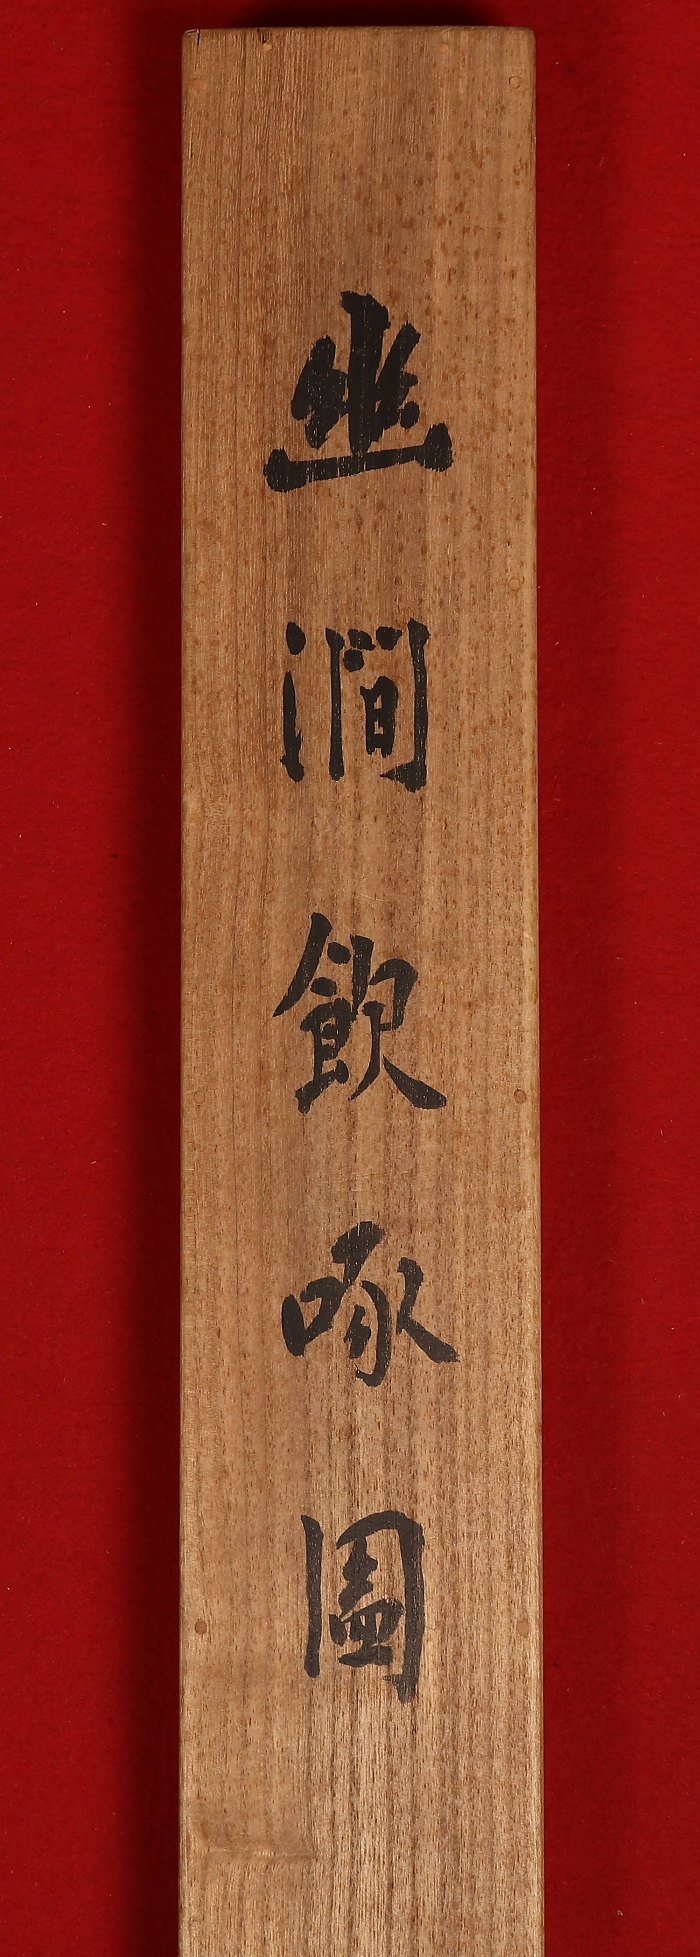 幽澗飲啄圖